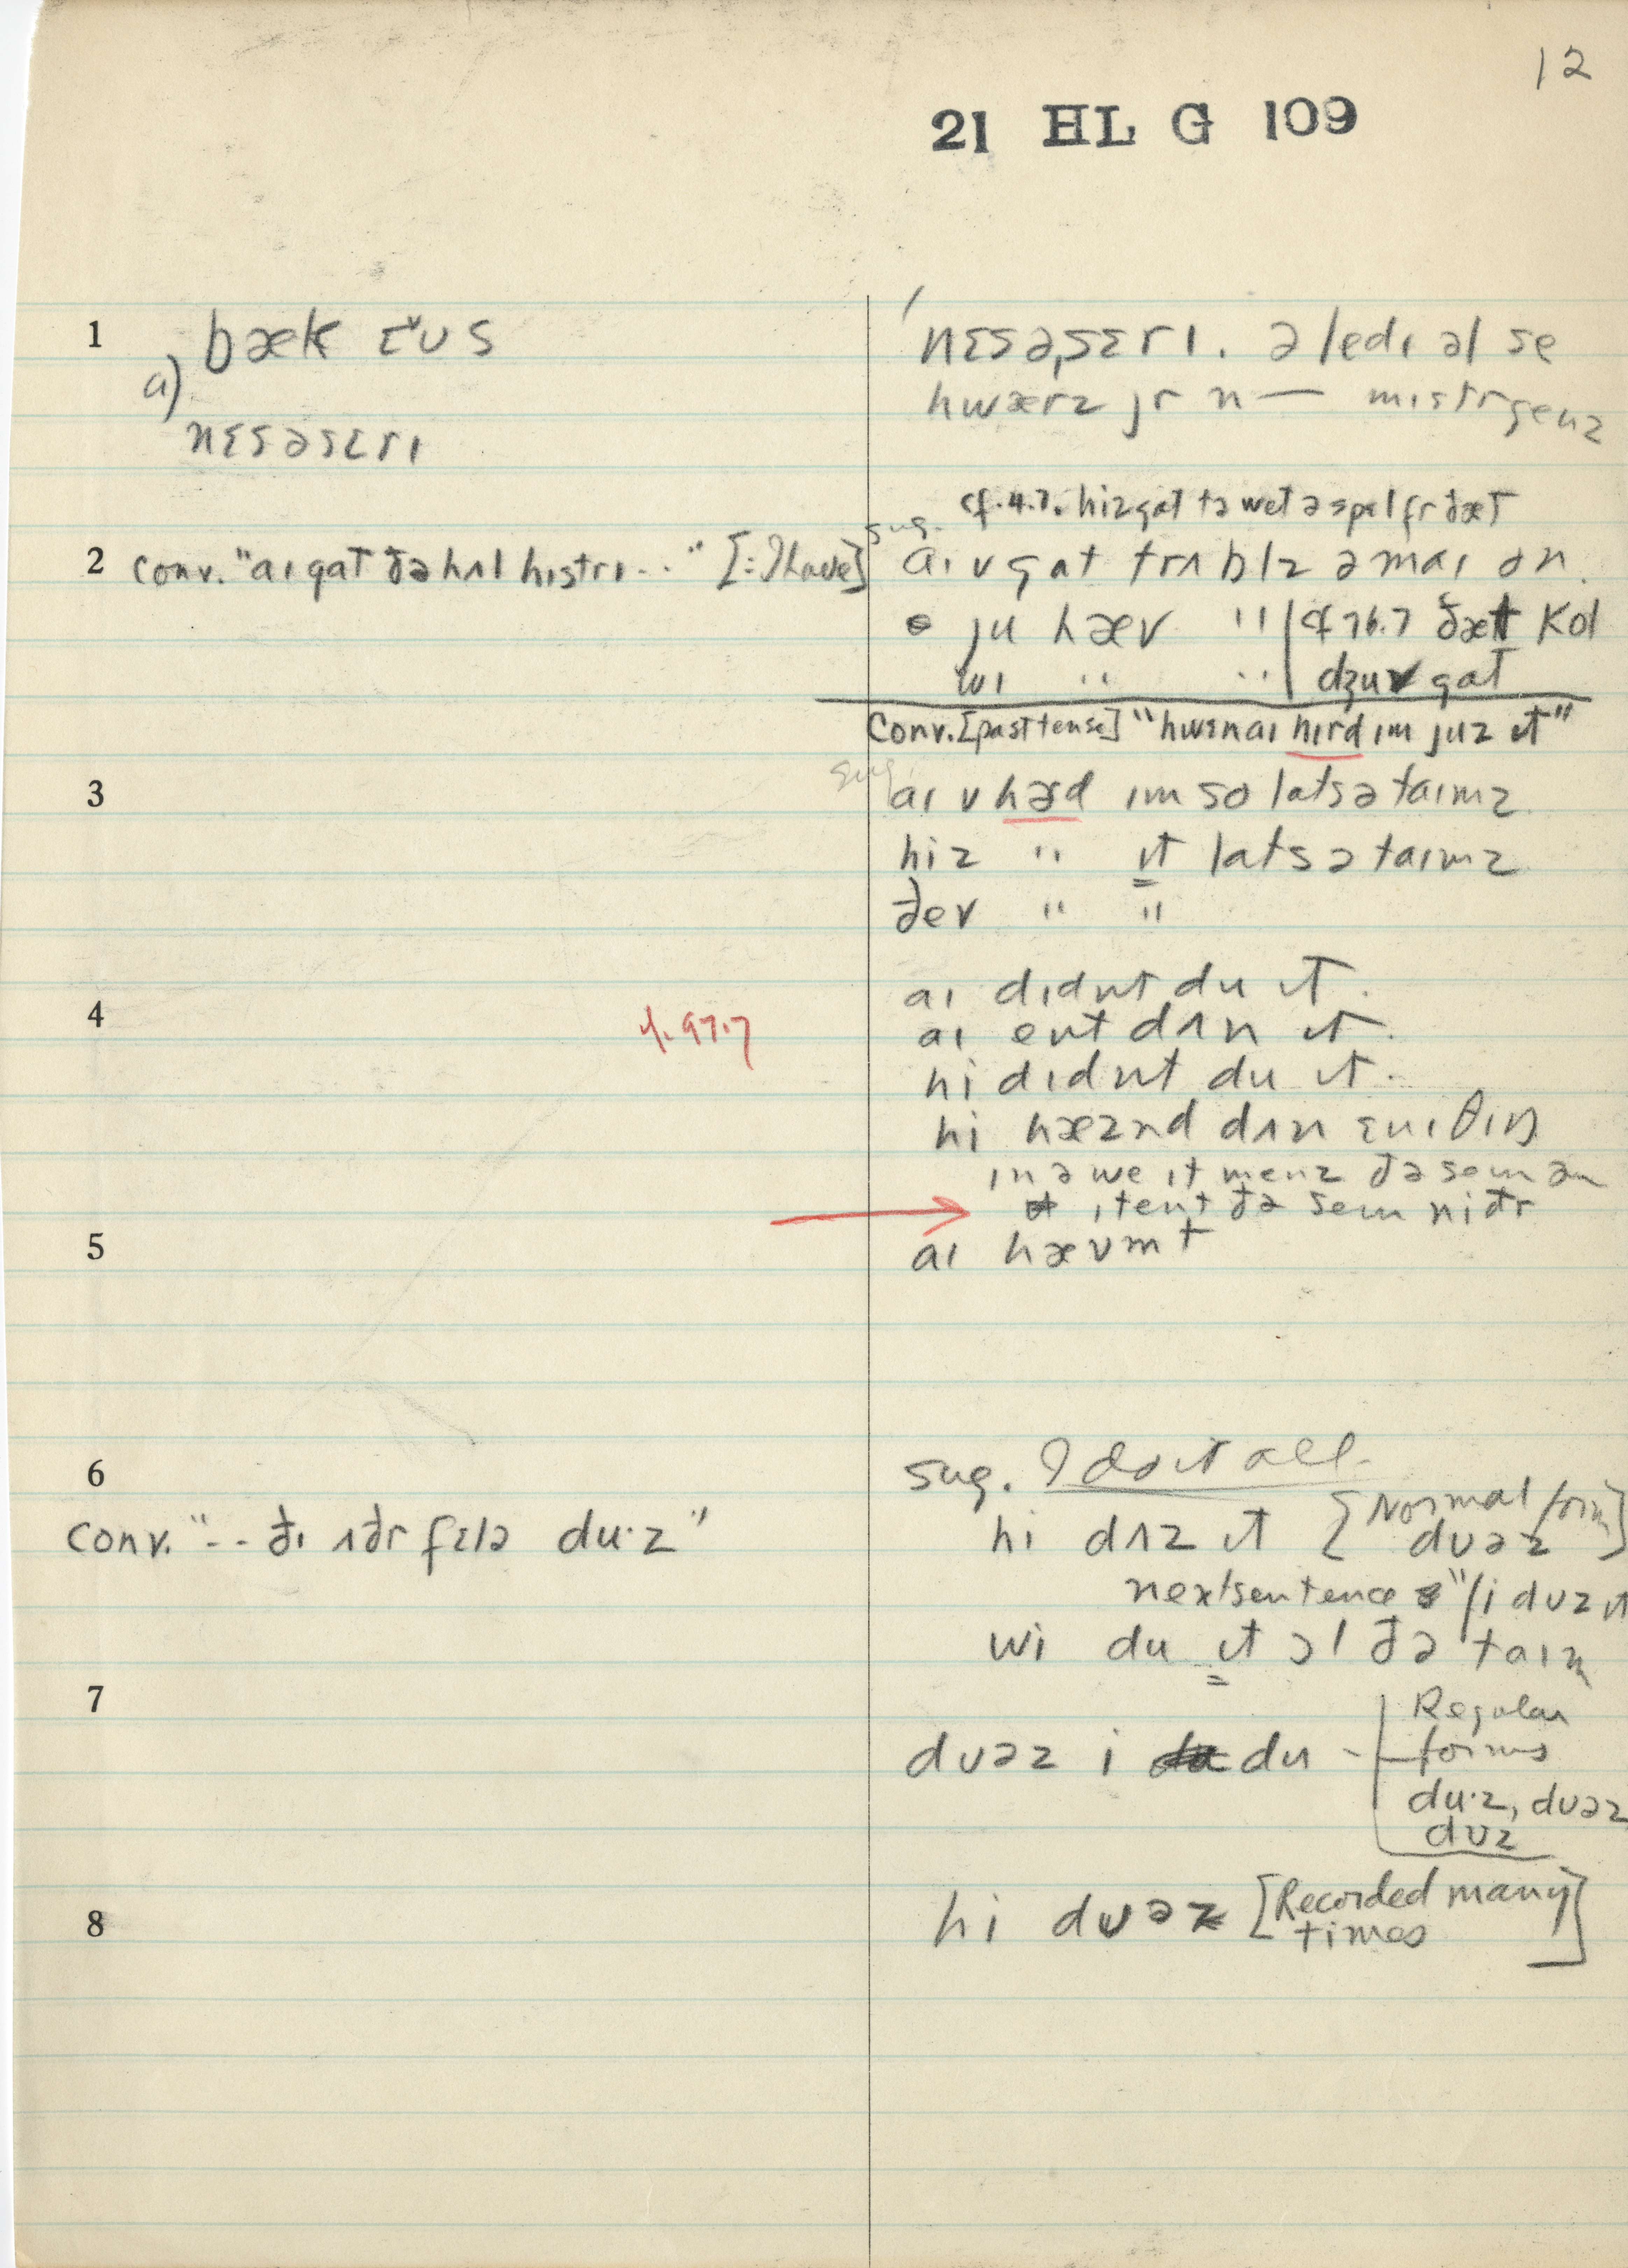 12
21 HL G 109
1
bæk ɛˇʊs
a)
nɛsəsɛrɪ
ˈnɛsəˌsɛrɪ. ə ledɪ əl se
hwærz jr n — mɪstr
2 conv. "aɪ gat ðə hʌl hɪstrɪ .." [=I have]
cf. 4.7. hiz gat tə wet ə spɛl fr ðæt
sug. aɪ v gat trʌblz ə maɪ ɔn.
ju hæv " | cf 76.7 ðæt kol
wɪ " " | dʒu v gat
conv. [past tense] "hwɛn aɪ hɪrd ɪm juz ɪt"
3
sug. aɪ v hɜrd ɪm so lats ə taɪmz
hi z " ɪt lats ə taɪmz
ðe v " "
4
cf. 97.7
aɪ dɪdnt du ɪt.
aɪ ent dʌn ɪt.
hi dɪdnt du ɪt.
hi hæznd dʌn ɛnɪθɪŋ
ɪn ə we ɪt menz ðə sem ən
ɪt ent ðə sem niðr
5
aɪ hævmt
6
sug. I do it all.
conv. "-- ðɪ ʌðr fɛlə du·z"
hi dʌz ɪt [Normal form dʊəz]
next sentence "hi dʊz ɪt
wi du ɪt ɔl ðə taɪm
7
dʊəz i du - Regular
forms
du·z, dʊəz
dʊz
8
hi dʊəz [Recorded many
times]